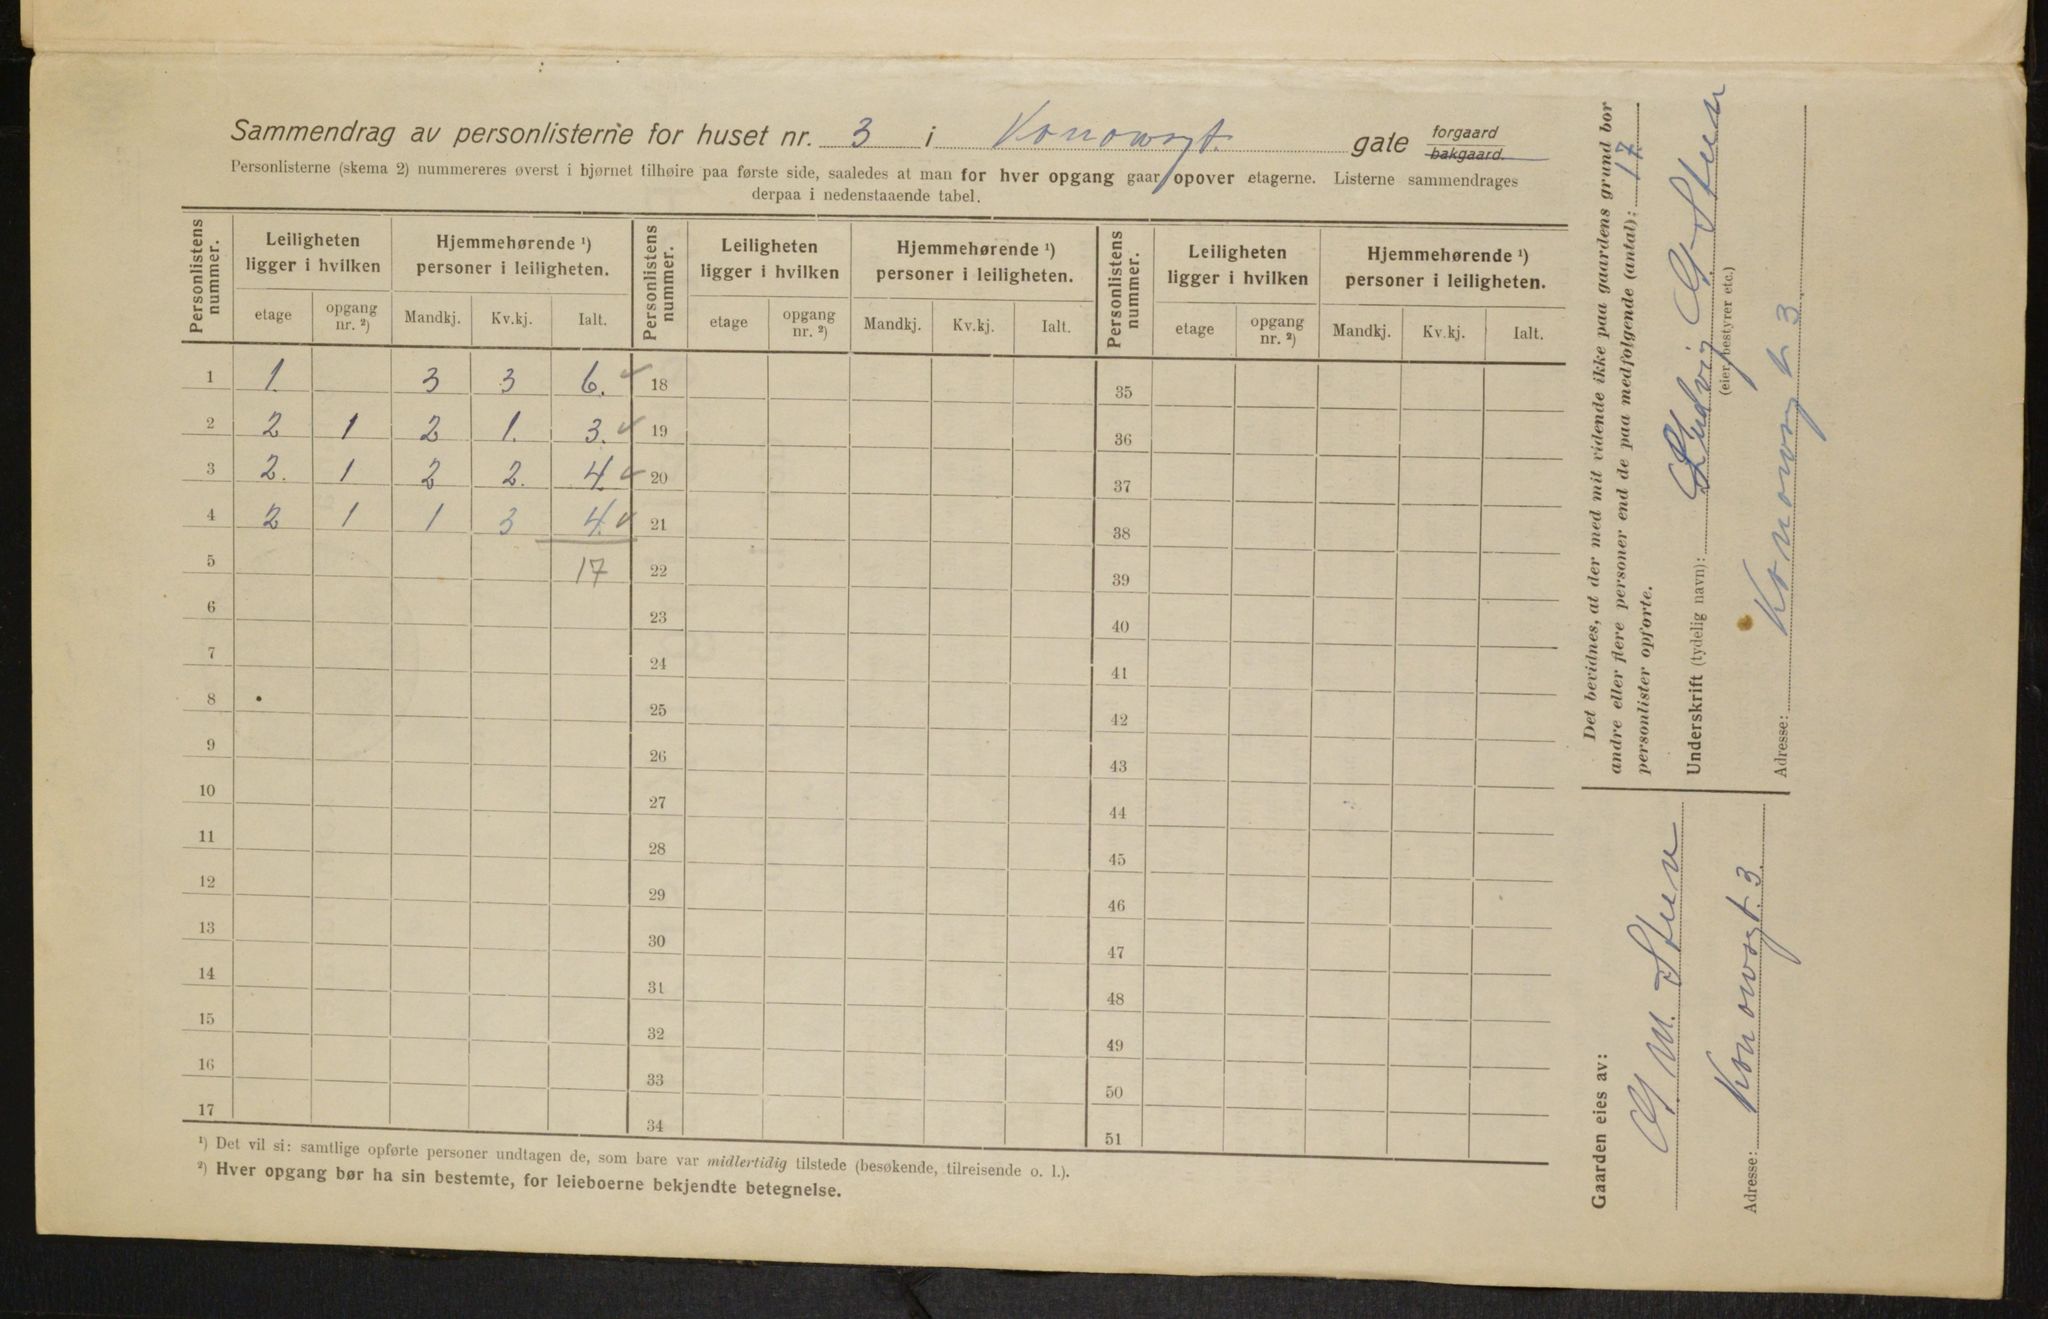 Sammendrag av personlisterne for huset nr. 3 i Konowsgt. gate forgaard bakgaard.
Personlisterne (skema 2) nummereres øverst i hjørnet tilhøire paa første side, saaledes at man for hver opgang gaar opover etagerne. Listerne sammendrages
derpaa i nedenstaaende tabel.
Personlistens nummer. Leiligheten ligger i hvilken Hjemmehørende ¹) personer i leiligheten. Personlistens nummer. Leiligheten ligger i hvilken Hjemmehørende ¹) personer i leiligheten. Personlistens nummer. Leiligheten ligger i hvilken Hjemmehørende ¹) personer i leiligheten.
etage opgang nr. ²) Mandkj. Kv.kj. Ialt. etage opgang nr. ²) Mandkj. Kv.kj. Ialt. etage opgang nr. ²) Mandkj. Kv.kj. Ialt.
1 1. 3 3 6. ✓ 18 35
2 2 1 2 1. 3. ✓ 19 36
3 2. 1 2 2. 4. ✓ 20 37
4 2 1 1 3 4. ✓ 21 38
5 17 22 39
6 23 40
7 24 41
8 25 42
9 26 43
10 27 44
11 28 45
12 29 46
13 30 47
14 31 48
15 32 49
16 33 50
17 34 51
¹) Det vil si: samtlige opførte personer undtagen de, som bare var midlertidig tilstede (besøkende, tilreisende o. l.).
²) Hver opgang bør ha sin bestemte, for leieboerne bekjendte betegnelse.
Det bevidnes, at der med mit vidende ikke paa gaardens grund bor
andre eller flere personer end de paa medfølgende (antal): 17
personlister opførte.
Underskrift (tydelig navn): Ludvig G. Steen
(eier, bestyrer etc.)
Adresse: Konowsgt 3
Gaarden eies av:
G. M. Steen
Adresse: Konowsgt. 3.